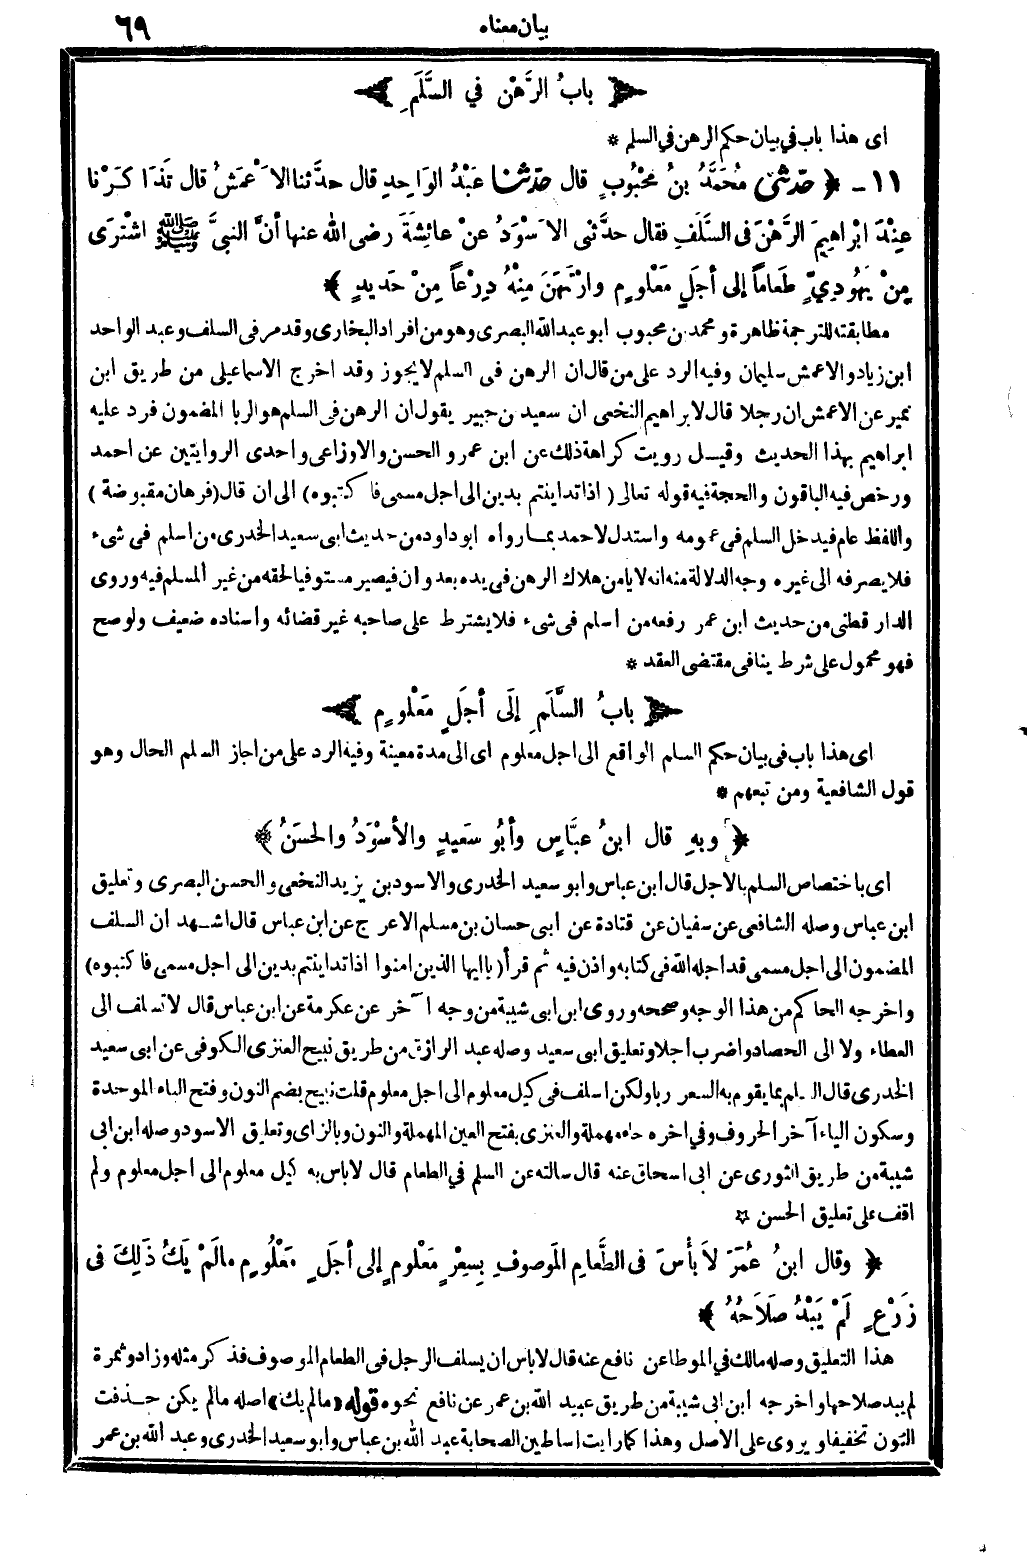 بيان معناه ٦٩
﴿ بابُ الرَّهْنِ في السَّلَمِ ﴾
اى هذا باب في بيان حكم الرهن في السلم *
١١ - ﴿ حدّثني مُحَمَّدُ بنُ مَحْبُوبٍ قال حدّثنا عَبْدُ الوَاحِدِ قال حدَّثنا الأَعْمَشُ قال تَذَاكَرْنا
عِنْدَ ابْراهِيمَ الرَّهْنَ فى السَّلَفِ فقال حدَّثنى الأَسْوَدُ عنْ عائِشَةَ رضى الله عنها أنَّ النبيَّ ﷺ اشْتَرَى
مِنْ يَهُودِيٍّ طَعَاماً إلى أجَلٍ مَعْلُومٍ وارْتَهَنَ مِنْهُ دِرْعاً مِنْ حَدِيدٍ ﴾
مطابقته للترجمة ظاهرة ومحمد بن محبوب ابو عبدالله البصرى وهو من افراد البخارى وقد مر فى السلف وعبد الواحد
ابن زياد والاعمش سليمان وفيه الرد على من قال ان الرهن فى السلم لا يجوز وقد اخرج الاسماعيلى من طريق ابن
نمير عن الاعمش ان رجلا قال لابراهيم النخعى ان سعيد بن جبير يقول ان الرهن فى السلم هو الربا المضمون فرد عليه
ابراهيم بهذا الحديث وقيل رويت كراهة ذلك عن ابن عمرو الحسن والاوزاعى واحدى الروايتين عن احمد
ورخص فيه الباقون والحجة فيه قوله تعالى ( اذا تداينتم بدين الى اجل مسمى فاكتبوه ) الى ان قال ( فرهان مقبوضة )
واللفظ عام فيدخل السلم فى عمومه واستدل لاحمد بما رواه ابو داود من حديث ابى سعيد الخدرى من اسلم فى شىء
فلا يصرفه الى غيره وجه الدلالة منه انه لا يامن هلاك الرهن فى يده بعدوان فيصير مستوفيا لحقه من غير المسلم فيه وروى
الدار قطنى من حديث ابن عمر رفعه من اسلم فى شىء فلا يشترط على صاحبه غير قضائه واسناده ضعيف ولو صح
فهو محمول على شرط ينافى مقتضى العقد *
﴿ بابُ السَّلَمِ إِلَى أجَلٍ مَعْلُومٍ ﴾
اى هذا باب فى بيان حكم السلم الواقع الى اجل معلوم اى الى مدة معينة وفيه الرد على من اجاز السلم الحال وهو
قول الشافعية ومن تبعهم *
﴿ وبِهِ قال ابنُ عبَّاسٍ وأبُو سَعِيدٍ والأسْوَدُ والحَسَنُ ﴾
اى باختصاص السلم بالاجل قال ابن عباس وابو سعيد الخدرى والاسود بن يزيد النخعى والحسن البصرى وتعليق
ابن عباس وصله الشافعى عن سفيان عن قتادة عن ابى حسان بن مسلم الاعرج عن ابن عباس قال اشهد ان السلف
المضمون الى اجل مسمى قد اجله الله فى كتابه واذن فيه ثم قرأ ( ياايها الذين امنوا اذا تداينتم بدين الى اجل مسمى فاكتبوه )
واخرجه الحاكم من هذا الوجه وصححه وروى ابن ابى شيبة من وجه آخر عن عكرمة عن ابن عباس قال لا تسلف الى
العطاء ولا الى الحصاد واضرب اجلا وتعليق ابى سعيد وصله عبد الرازق من طريق نبيح العنزى الكوفى عن ابى سعيد
الخدرى قال السلم بما يقوم به السعر ربا ولكن اسلف فى كيل معلوم الى اجل معلوم قلت نبيح بضم النون وفتح الباء الموحدة
وسكون الياء آخر الحروف وفي اخره حاء مهملة والعنزى بفتح العين المهملة والنون وبالزاى وتعليق الاسود وصله ابن ابى
شيبة من طريق الثورى عن ابى اسحاق عنه قال سالته عن السلم في الطعام قال لا باس به كيل معلوم الى اجل معلوم ولم
اقف على تعليق الحسن ☆
﴿ وقال ابنُ عُمَرَ لاَ بأْسَ فى الطَّعامِ المَوصوفِ بِسِعْرٍ مَعْلُومٍ إلى أجَلٍ مَعْلُومٍ مالَمْ يَكُ ذَلِكَ فى
زَرْعٍ لَمْ يَبْدُ صَلاَحُهُ ﴾
هذا التعليق وصله مالك في الموطا عن نافع عنه قال لا باس ان يسلف الرجل فى الطعام الموصوف فذكر مثله وزاد وثمرة
لم يبد صلاحها واخرجه ابن ابى شيبة من طريق عبيد الله بن عمر عن نافع نحوه قوله «مالم يك» اصله مالم يكن حذفت
النون تخفيفا ويروى على الاصل وهذا كما رايت اساطين الصحابة عبد الله بن عباس وابو سعيد الخدرى وعبد الله بن عمر